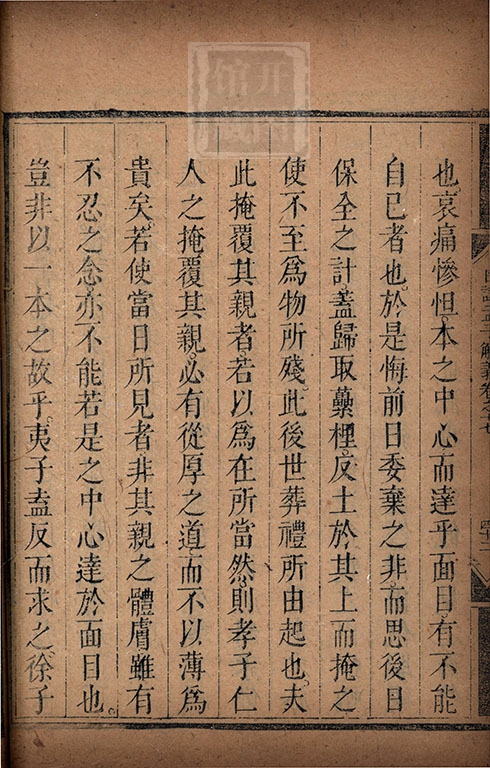 也哀痛慘怛本之中心而達乎面目有不能
自已者也於是悔前日委棄之非而思後日
保全之計蓋歸取虆梩反土於其上而掩之
使不至爲物所殘此後世葬禮所由起也夫
此掩覆其親者若以爲在所當然則孝子仁
人之掩覆其親必有從厚之道而不以薄爲
貴矣若使當日所見者非其親之體膚雖有
不忍之念亦不能若是之中心達於面目也
豈非以一本之故乎夷子盍反而求之徐子